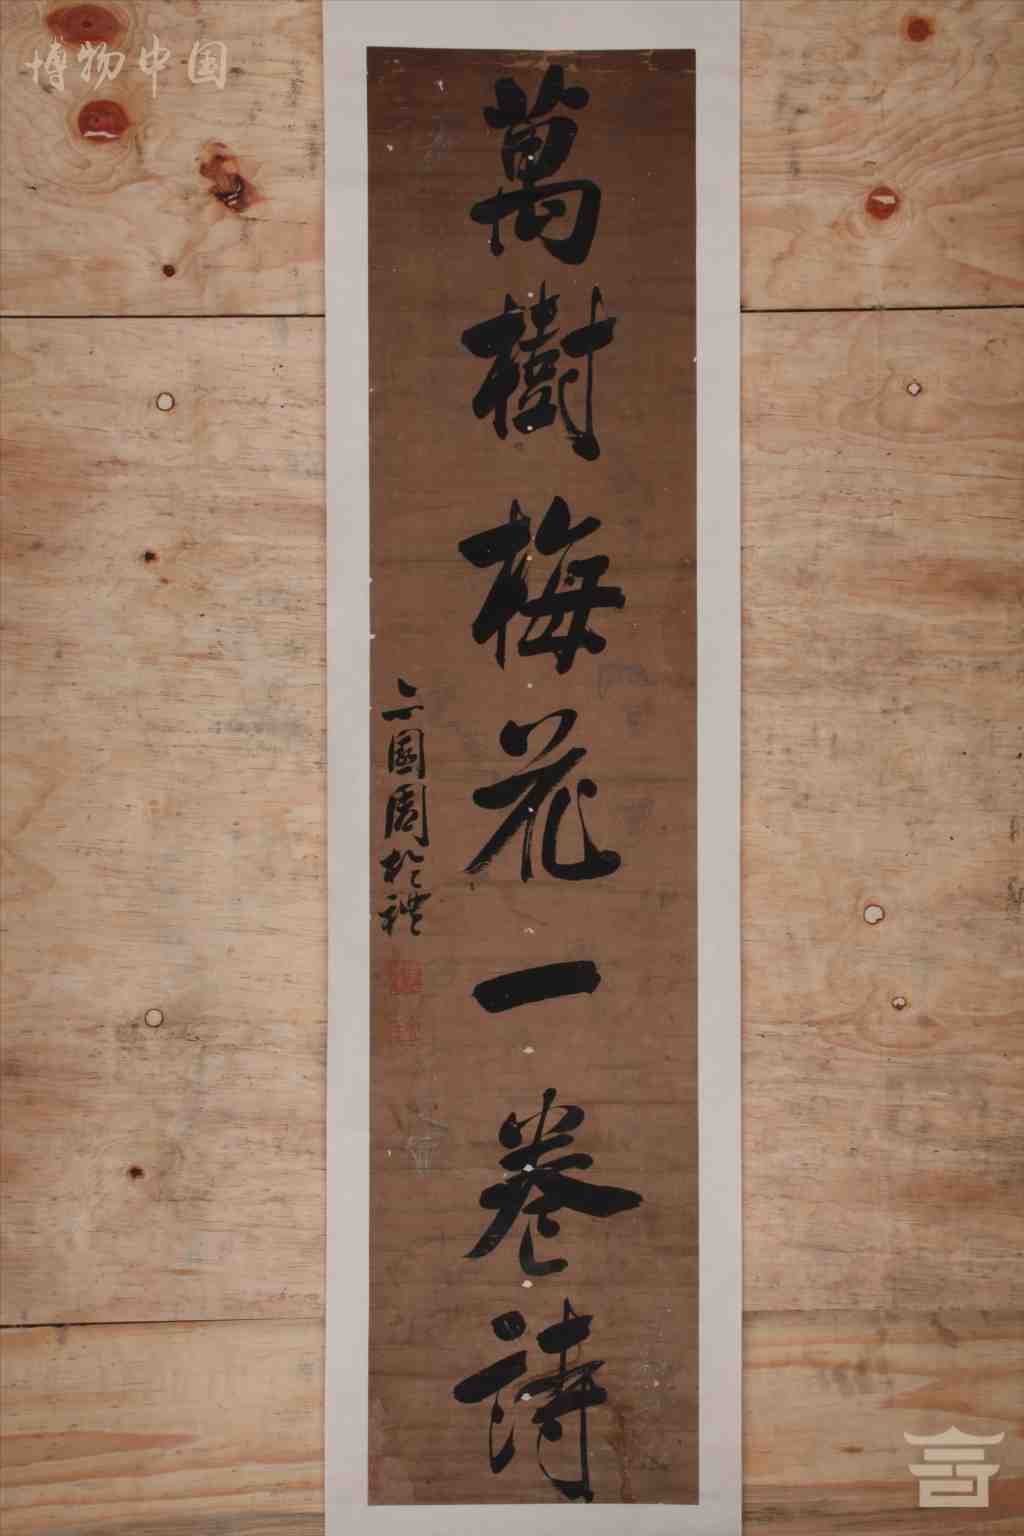 博物中国
萬樹梅花一卷詩
亦園周於禮